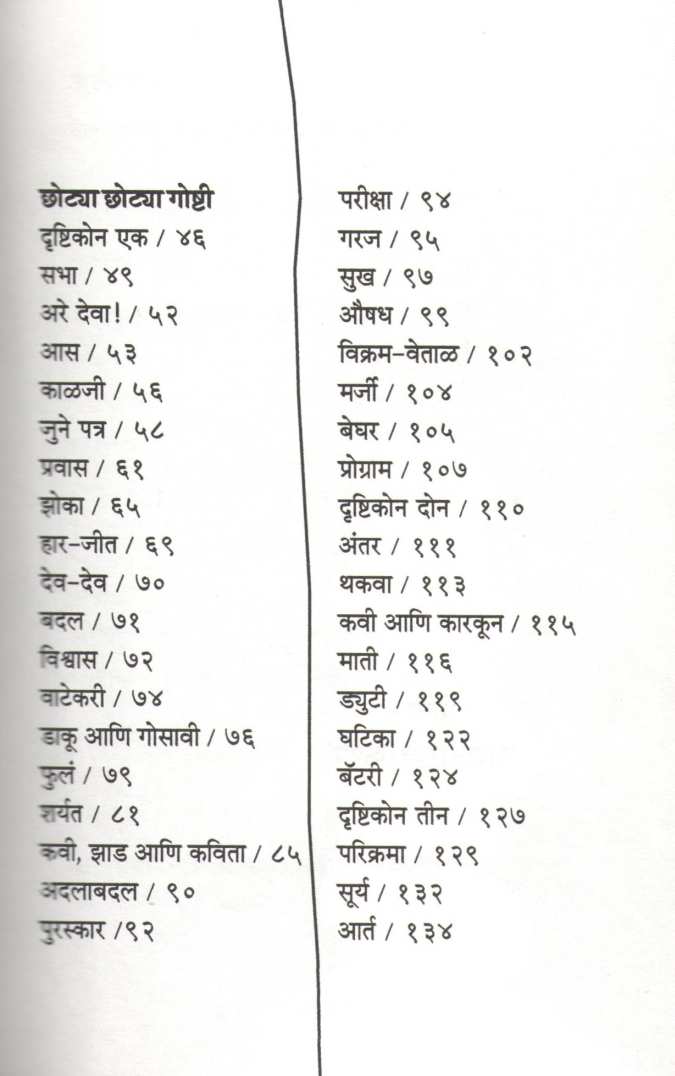 छोट्या छोट्या गोष्टी
दृष्टिकोन एक / ४६
सभा / ४९
अरे देवा! / ५२
आस / ५३
काळजी / ५६
जुने पत्र / ५८
प्रवास / ६१
झोका / ६५
हार-जीत / ६९
देव-देव / ७०
बदल / ७१
विश्वास / ७२
वाटेकरी / ७४
डाकू आणि गोसावी / ७६
फुलं / ७९
शर्यत / ८१
कवी, झाड आणि कविता / ८५
अदलाबदल / ९०
पुरस्कार /९२
परीक्षा / ९४
गरज / ९५
सुख / ९७
औषध / ९९
विक्रम-वेताळ / १०२
मर्जी / १०४
बेघर / १०५
प्रोग्राम / १०७
दृष्टिकोन दोन / ११०
अंतर / १११
थकवा / ११३
कवी आणि कारकून / ११५
माती / ११६
ड्युटी / ११९
घटिका / १२२
बॅटरी / १२४
दृष्टिकोन तीन / १२७
परिक्रमा / १२९
सूर्य / १३२
आर्त / १३४